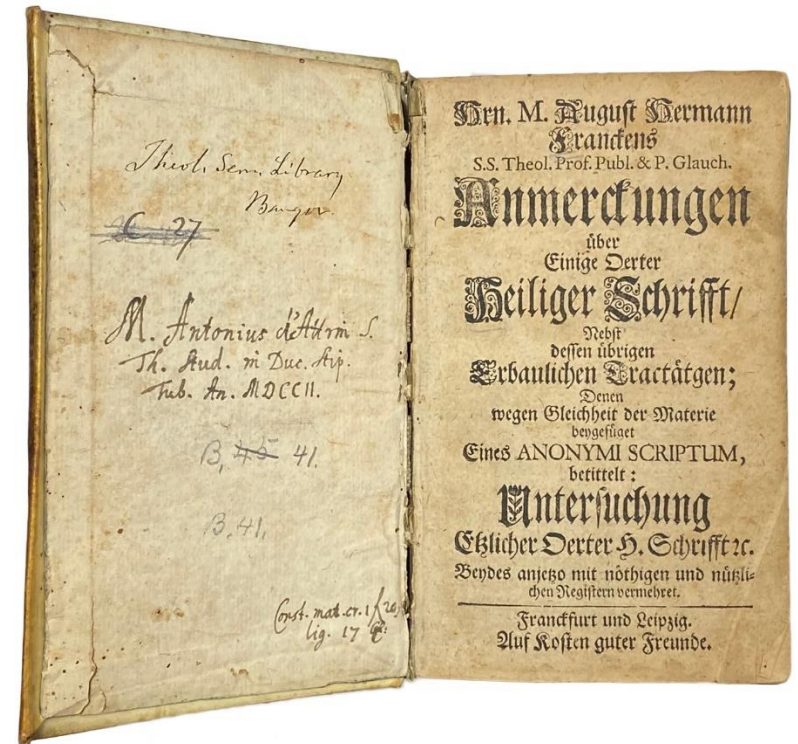 Theol. Sem. Library
Bangor.
C. 27
M. Antonius
Th. Stud. in Duc. Stip.
Tub. An. MDCCII.
B, 45 41.
B. 41.
Const. mat. cr. 1
lig. 17
Hrn. M. August Hermann
Franckens
S.S. Theol. Prof. Publ. & P. Glauch.
Anmerckungen
über
Einige Oerter
Heiliger Schrifft/
Nebst
dessen übrigen
Erbaulichen Tractätgen;
Denen
wegen Gleichheit der Materie
beygefüget
Eines ANONYMI SCRIPTUM,
betittelt:
Untersuchung
Etzlicher Oerter H. Schrifft ꝛc.
Beydes anjetzo mit nöthigen und nützli-
chen Registern vermehret.
Franckfurt und Leipzig.
Auf Kosten guter Freunde.